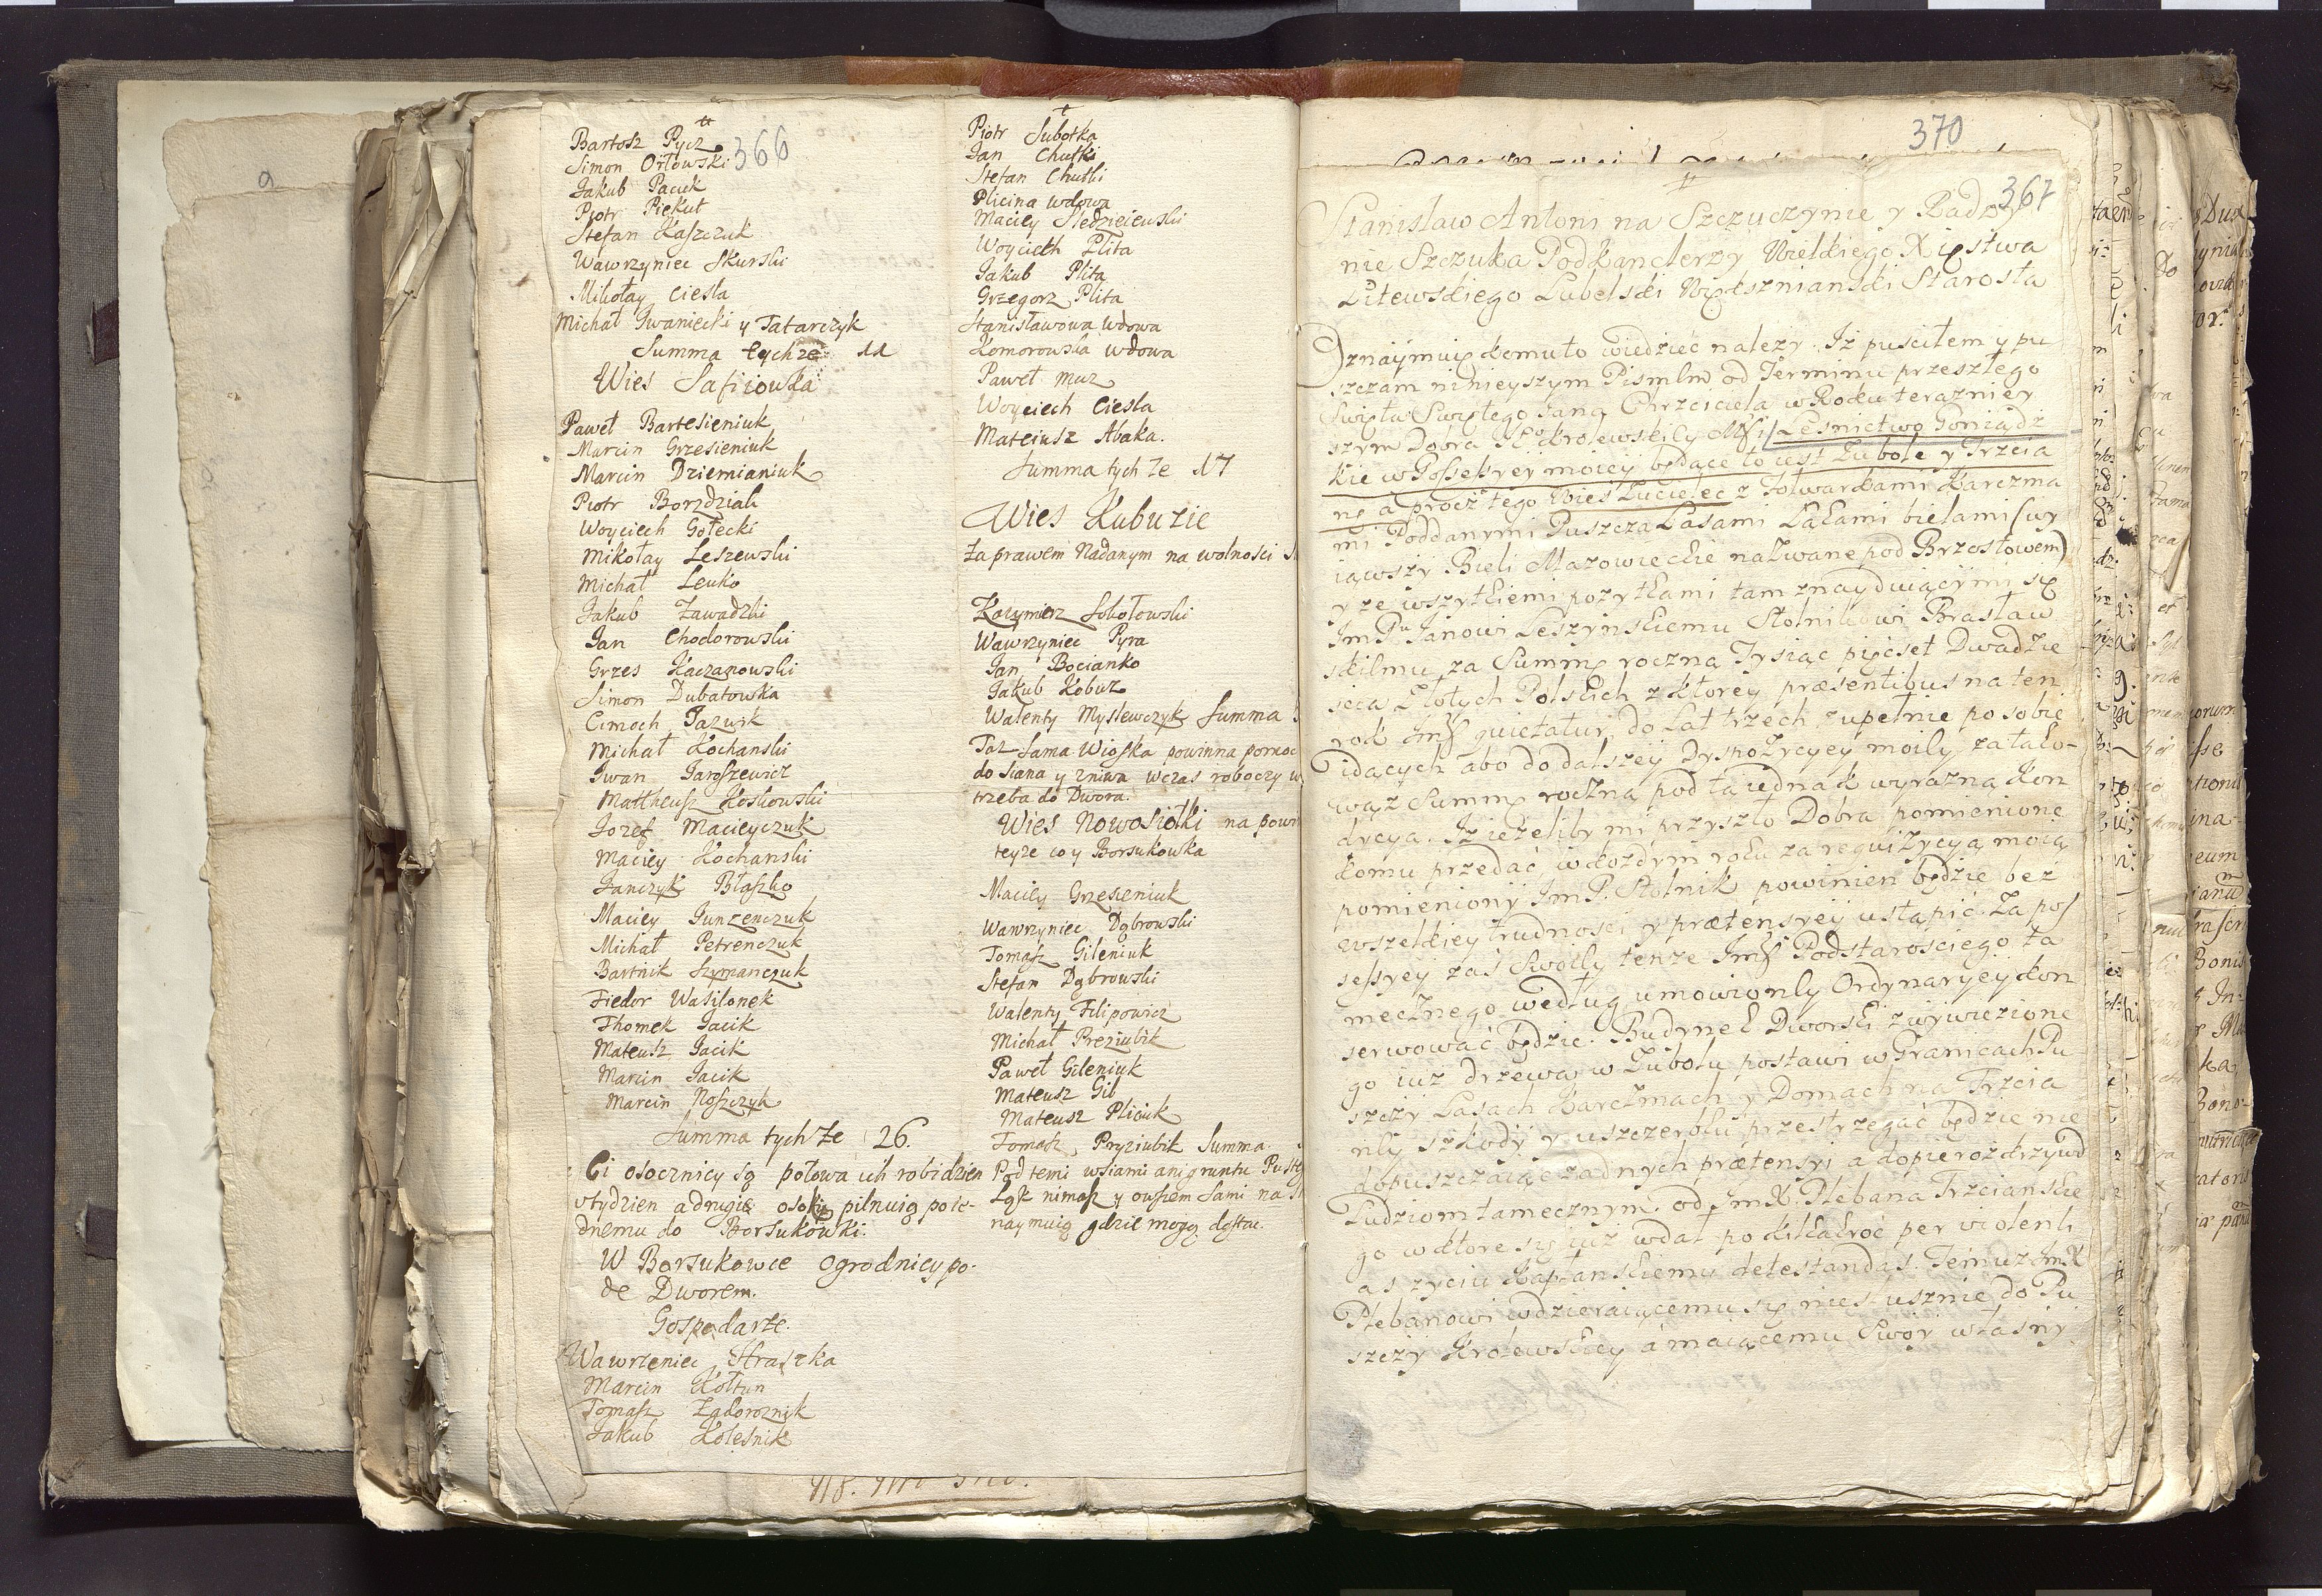 Bartosz Pycz
366
Simon Orłowski
Jakub Pacuk
Piotr Piekut
Stefan Kaszczuk
Wawrzyniec Skurski
Mikołay Ciesla
Michał Iwaniecki y Tatarczyk
Summa tychże 11
Wies Safiiowka
Paweł Bartesieniuk
Marcin Grzesieniuk
Marcin Dziemianiuk
Piotr Borzdziak
Woyciech Gołecki
Mikołay Leszewski
Michał Lenko
Jakub Zawadzki
Jan Chodorowski
Grzes Kaczanowski
Simon Dubatowka
Cimoch Jazuyk
Michał Kochanski
Iwan Jaroszewicz
Mattheusz Koskowski
Jozef Macieyczuk
Maciey Kochanski
Janczyk Błaszko
Maciey Junzenczuk
Michał Petrenczuk
Bartnik Szymanczuk
Fiedor Wasilonek
Thomek Jacik
Mateusz Jacik
Marcin Jacik
Marcin Noszczyk
Summa tychże 26.
Ci osocznicy są połowa ich robi dzien
w tydzien a drugie osoki pilnuią po ie-
dnemu do Borsukowki.
W Borsukowce ogrodnicy po-
de Dworem.
Gospodarze.
Wawrzeniec Straszka
Marcin Kołtun
Tomasz Zadoroznik
Jakub Kolesnik
Piotr Subotka
Jan Chutki
Stefan Chutki
Plicina wdowa
Maciey Siedzieiewski
Woyciech Plita
Jakub Plita
Grzegorz Plita
Stanisławowa wdowa
Komorowska wdowa
Paweł Muz
Woyciech Ciesla
Mateiusz Abaka.
Summa tychże 17
Wies Kubuzie
Za prawem Nadanym na wolnosci
Kazimierz Sobołowski
Wawrzyniec Pyra
Jan Bocianko
Jakub Kobuz
Walenty Myslewczyk Summa
Taż Sama Wioska powinna pomoc
do siana y zniwa wczas roboczy
trzeba do Dwora.
Wies Nowosiołki na powi
teyże co y Borsukowka
Maciey Grzesieniuk
Wawrzyniec Dąbrowski
Tomasz Gileniuk
Stefan Dąbrowski
Walenty Filipowicz
Michał Preziubik
Paweł Gileniuk
Mateusz Gil
Mateusz Pliciuk
Tomasz Pryziubik Summa
Pod temi wsiami ani gruntu Puste
Ląk nimasz y owszem sami na
naymuią gdzie mogą dostać.
370
367
Stanisław Antoni na Szczuczynie y Radzy
nie Szczuka Podkanclerzy Wielkiego Xięstwa
Litewskiego Lubelski Wąkszniański Starosta
Oznaymuię komu to wiedzieć nalezy. Iż puscilem y pu
szczam ninieyszym Pismem od Terminu przeszłego
Swięta Swiętego Jana Chrzciciela w Roku terazniey
szym Dobra JKo krolewskiey Msci Lesnictwo Goniądz
kie w Possessyey moiey będące to iest Zubole y Trzcia
ne a procz tego Wies Zucielec z Folwarkami Karczma
mi Poddanymi Puszcza Lasami Łąkami bielami (wy
iąwszy Bieli Mazowieckie nazwane pod Brzostowem)
y ze wszytkiemi pozytkami tam znayduiącymi się
Im Pu Janowi Leszynskiemu Stolnikowi Brasław
skiemu za Summę roczną Tysiąc pięcset Dwadzie
scia Złotych Polskich z ktorey præsentibus na ten
rok Jmsc quietatur, do lat trzech zupełnie po sobie
idących abo do dalszey Dyspozycyey moiey za tako-
wąż Summę roczną pod tą iednak wyrazną kon
dycyą. Iż ieżeliby mi przyszło Dobra pomienione
komu przedać w kozdym roku za requizycyą moią
pomieniony Im P. Stolnik powinien będzie bez
wszelkiey trudnosci y prætensyey ustąpic. Za pos
sessyey zas swoiey tenże Jmsc Podstarosciego ta
mecznego według umowioney Ordynaryey kon
serwować będzie. Budynek Dworski z wywiezione
go iuż drzewa w Zubolu postawi w Granicach Pu
szczy Lasach Karczmach y Domach na Trzcia
ney szkody y uszczerbku przestrzegać będzie nie
dopuszczaiąc zadnych prætensyi a dopieroż krzywd
Ludziom tamecznym od Jm X. Plebana Trzcianskie
go w ktore się iuż wdał po kilkakroć per violenti
as zyciu Kapłanskiemu detestandas. Temuż Jm X
Plebanowi wdzieraiącemu się niesłusznie do Pu
szczy Krolewskiey a maiącemu Swoy własny